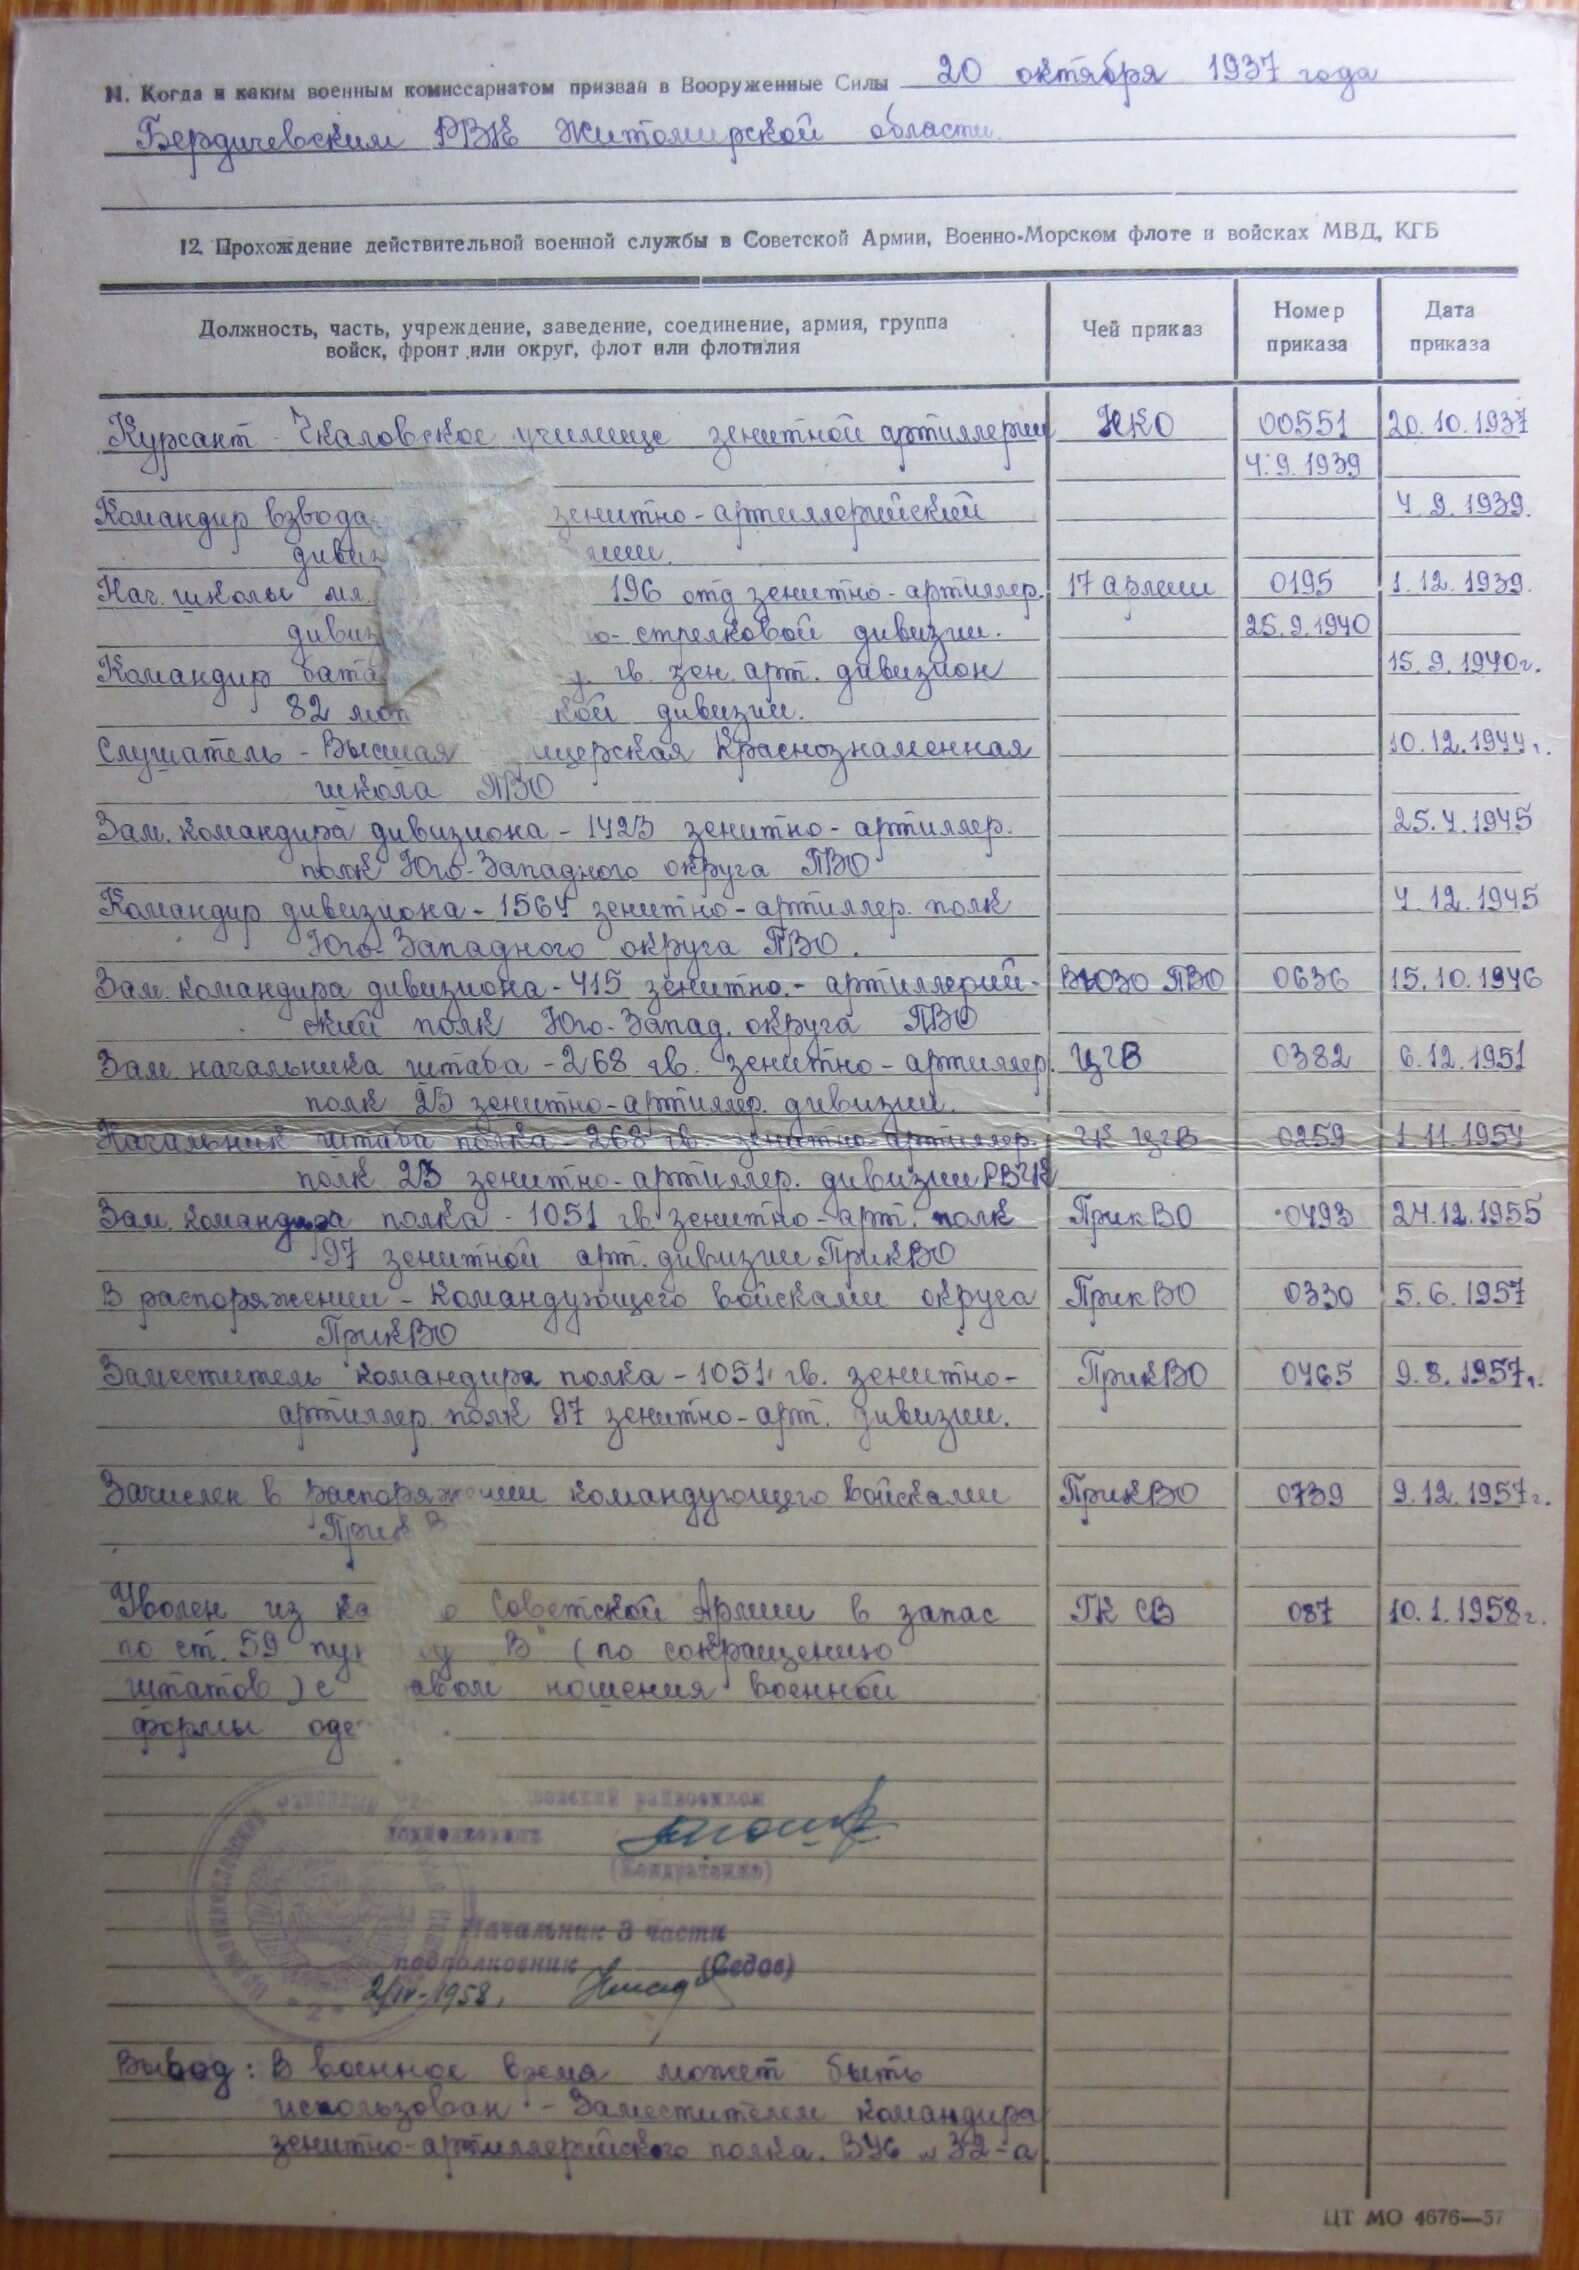 11. Когда и каким военным комиссариатом призван в Вооруженные Силы 20 октября 1937 года
Бердичевским РВК Житомирской области.
12. Прохождение действительной военной службы в Советской Армии, Военно-Морском флоте и войсках МВД, КГБ
Должность, часть, учреждение, заведение, соединение, армия, группа войск, фронт или округ, флот или флотилия Чей приказ Номер приказа Дата приказа
Курсант - Чкаловское училище зенитной артиллерии НКО 00551 20.10.1937
4.9.1939
Командир взвода зенитно-артиллерийский 4.9.1939.
дивиз
Нач. школы мл. 196 отд зенитно-артиллер. 17 армии 0195 1.12.1939.
дивиз о-стрелковой дивизии. 25.9.1940
Командир бата гв. зен. арт. дивизион 15.9.1940г.
82 мот кой дивизии.
Слушатель - Высшая ицерская Краснознаменная 10.12.1944г.
школа ПВО
Зам. командира дивизиона - 1423 зенитно-артиллер. 25.4.1945
полк Юго-Западного округа ПВО
Командир дивизиона - 1564 зенитно-артиллер. полк 4.12.1945
Юго-Западного округа ПВО.
Зам. командира дивизиона - 415 зенитно-артиллерий- ВЮЗО ПВО 0636 15.10.1946
ский полк Юго-Запад. округа ПВО
Зам. начальника штаба - 268 гв. зенитно-артиллер. ЦГВ 0382 6.12.1951
полк 23 зенитно-артиллер. дивизии.
Начальник штаба полка - 268 гв. зенитно-артиллер. ГК ЦГВ 0259 1.11.1954
полк 23 зенитно-артиллер. дивизии
Зам. командира полка - 1051 гв. зенитно-арт. полк ПрикВО 0493 24.12.1955
97 зенитной арт. дивизии ПрикВО
В распоряжении - командующего войсками округа ПрикВО 0330 5.6.1957
ПрикВО
Заместитель командира полка - 1051 гв. зенитно- ПрикВО 0465 9.8.1957г.
артиллер. полк 97 зенитно-арт. дивизии.
Зачислен в распоряжении командующего войсками ПрикВО 0739 9.12.1957г.
Прик В
Уволен из ка о Советской Армии в запас ГК СВ 087 10.1.1958г.
по ст. 59 пун "В" (по сокращению
штатов) с авом ношения военной
формы оде .
райвоенком
подполковник
(Кондратенко)
Начальник 3 части
подполковник (Седов)
2/IV-1958.
Вывод: В военное время может быть
использован - Заместителем командира
зенитно-артиллерийского полка. ВУС № 32-а
ЦТ МО 4676—57